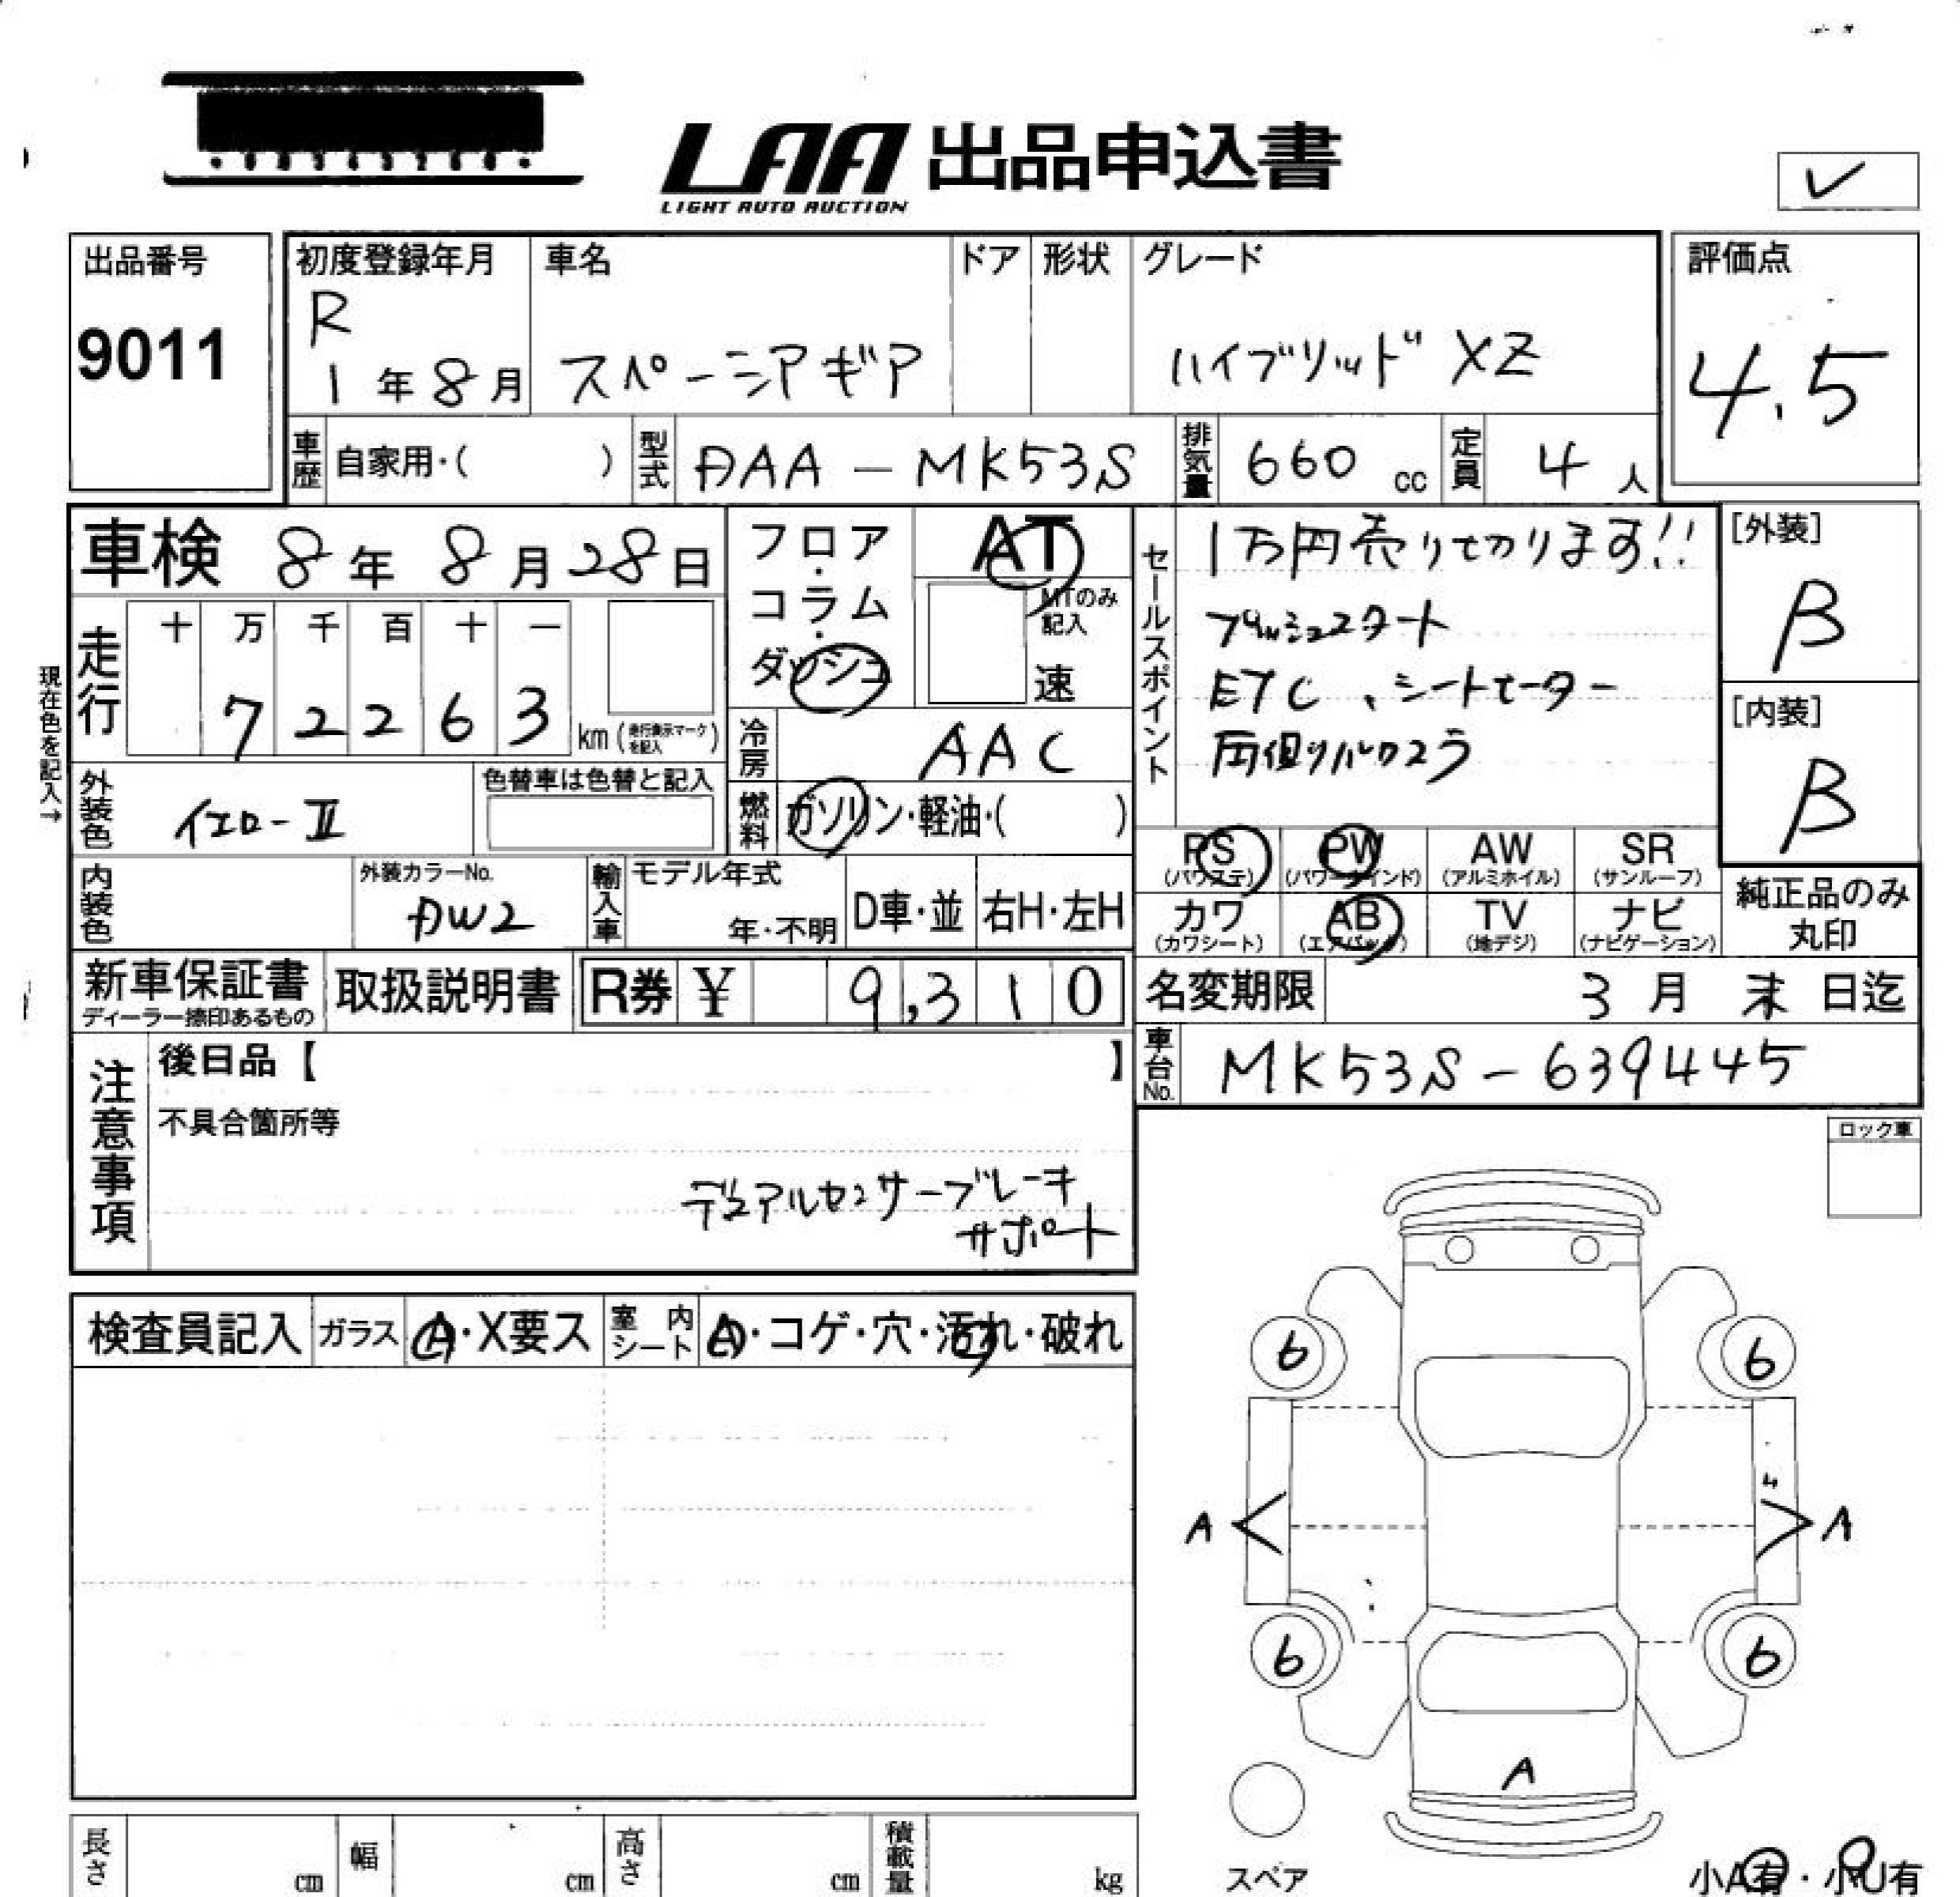 LAA 出品申込書
LIGHT AUTO AUCTION
出品番号
9011
初度登録年月
R
1年8月
車名
スペーシアギア
ドア
形状
グレード
ハイブリッド XZ
評価点
4.5
車歴 自家用・( )
型式 DAA-MK53S
排気量 660 cc
定員 4人
車検 8年8月28日
フロア・コラム・ダッシュ
AT
MTのみ記入
速
セールスポイント
1万円売り切ります!!
プッシュスタート
ETC、シートヒーター
両側パワスラ
[外装]
B
[内装]
B
現在色を記入→
走行 十 万 千 百 十 一
7 2 2 6 3 km (走行表示マークを記入)
冷房 AAC
外装色 イエロ-II
色替車は色替と記入
燃料 ガソリン・軽油・( )
PS (パワステ) PW (パワーウインド) AW (アルミホイル) SR (サンルーフ)
カワ (カワシート) AB (エアバック) TV (地デジ) ナビ (ナビゲーション)
純正品のみ丸印
内装色
外装カラーNo.
DW2
輸入車 モデル年式
年・不明
D車・並
右H・左H
新車保証書
ディーラー捺印あるもの
取扱説明書
R券 ¥ 9,310
名変期限 3月末日迄
車台No. MK53S-639445
注意事項
後日品【 】
不具合箇所等
デュアルセンサーブレーキ
サポート
ロック車
検査員記入 ガラス A・X要ス 室内シート A・コゲ・穴・汚れ・破れ
6 6
A A
6 6
A
スペア
小A有・小U有
長さ cm 幅 cm 高さ cm 積載量 kg